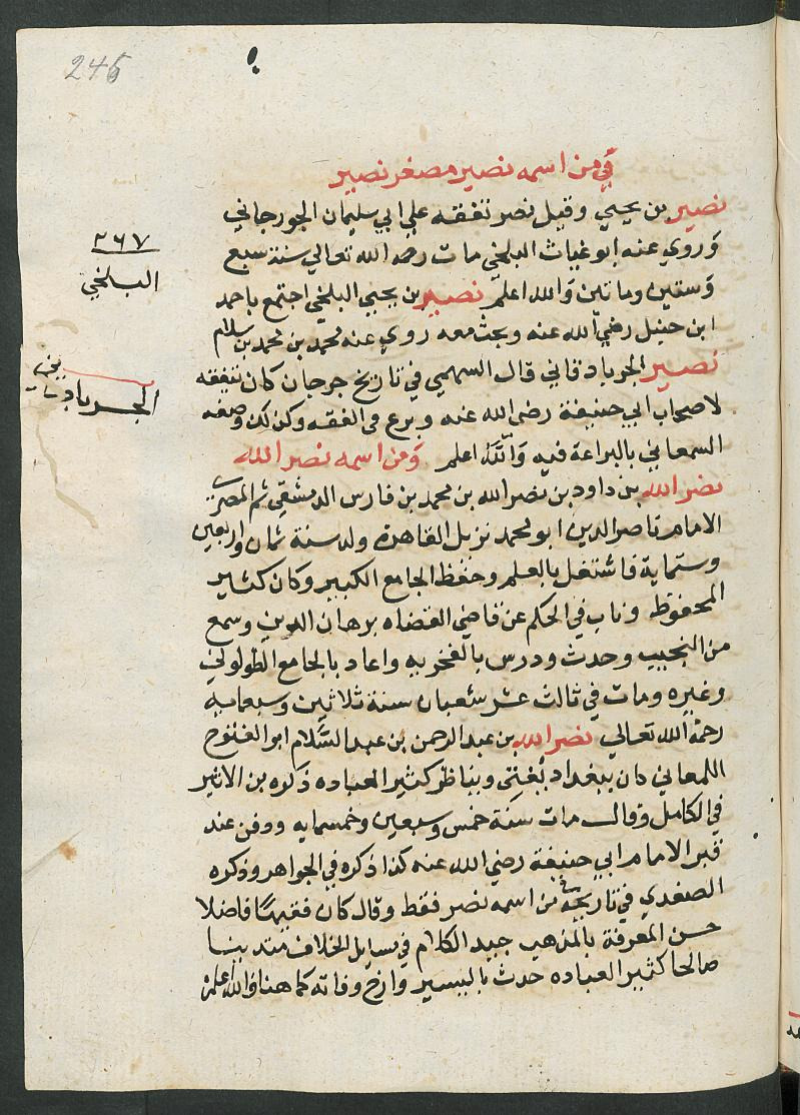 246
في من اسمه نصير مصغر نصير
نصير بن يحيي وقيل نصر تفقه علي ابي سليمان الجورجاني
وروي عنه ابو غياث البلخي مات رحمه الله تعالي سنة سبع
٢٦٧
البلخي
وستين وماتين والله اعلم نصير بن يحيي البلخي اجتمع باحمد
ابن حنبل رضي الله عنه وبحث معه روي عنه محمد بن محمد بن سلام
نصير الجرباد قاني قال السهمي في تاريخ جرجان كان تفقه
لاصحاب ابي حنيفة رضي الله عنه وبرع في الفقه وكذلك وصفه
السمعاني بالبراعة فيه والله اعلم ومن اسمه نصر الله
نصر الله بن داود بن نصر الله بن محمد بن فارس الدمشقي ثم المصري
الامام ناصر الدين ابو محمد نزيل القاهرة ولد سنة ثمان واربعين
وستماية فاشتغل بالعلم وحفظ الجامع الكبير وكان كثير
المحفوظ وناب في الحكم عن قاضي القضاه برهان الدين وسمع
من النجيب وحدث ودرس بالفخريه واعاد بالجامع الطولوني
وغيره ومات في ثالث عشر شعبان سنة ثلاثين وسبعمايه
رحمة الله تعالي نصر الله بن عبد الرحمن بن عبد السلام ابو الفتوح
اللمعاني كان ببغداد يفتى ويناظر كثير العباده ذكره بن الاثير
في الكامل وقال مات سنة خمس وسبعين وخمسمايه ودفن عند
قبر الامام ابي حنيفة رضي الله عنه كذا ذكره في الجواهر وذكره
الصفدي في تاريخه من اسمه نصر فقط وقال كان فقيها فاضلا
حسن المعرفة بالمذهب جيد الكلام في مسايل الخلاف متدينا
صالحا كثير العباده حدث باليسير وارخ وفاته كما هنا والله اعلم